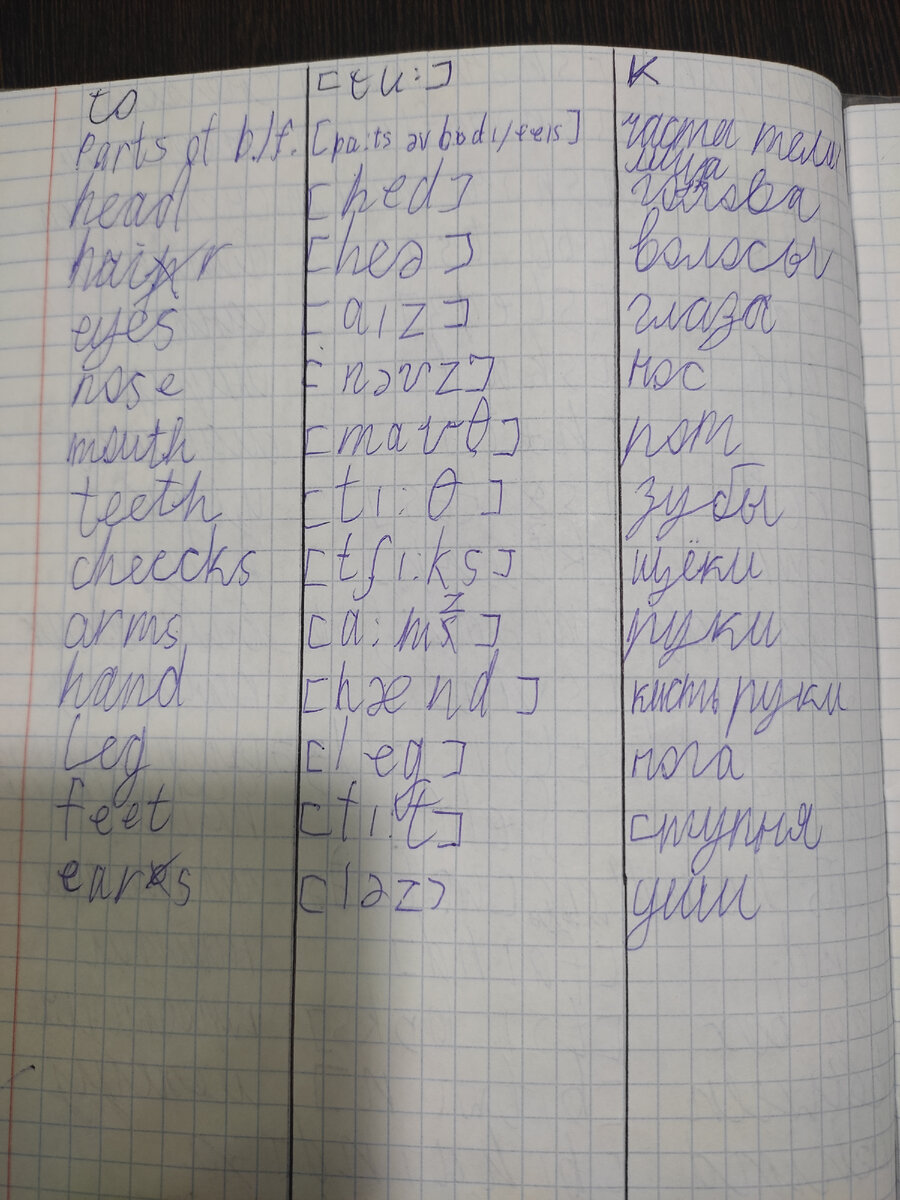 to [tu:] к
Parts of b./f. [pa:ts əv bodi/feis] части тела/лица
head [hed] голова
hair [heə] волосы
eyes [aiz] глаза
nose [nəvz] нос
mouth [mavθ] рот
teeth [ti:θ] зубы
cheecks [tʃi:ks] щёки
arms [a:mz] руки
hand [hænd] кисть руки
leg [leg] нога
feet [fi:t] ступня
ears [iəz] уши